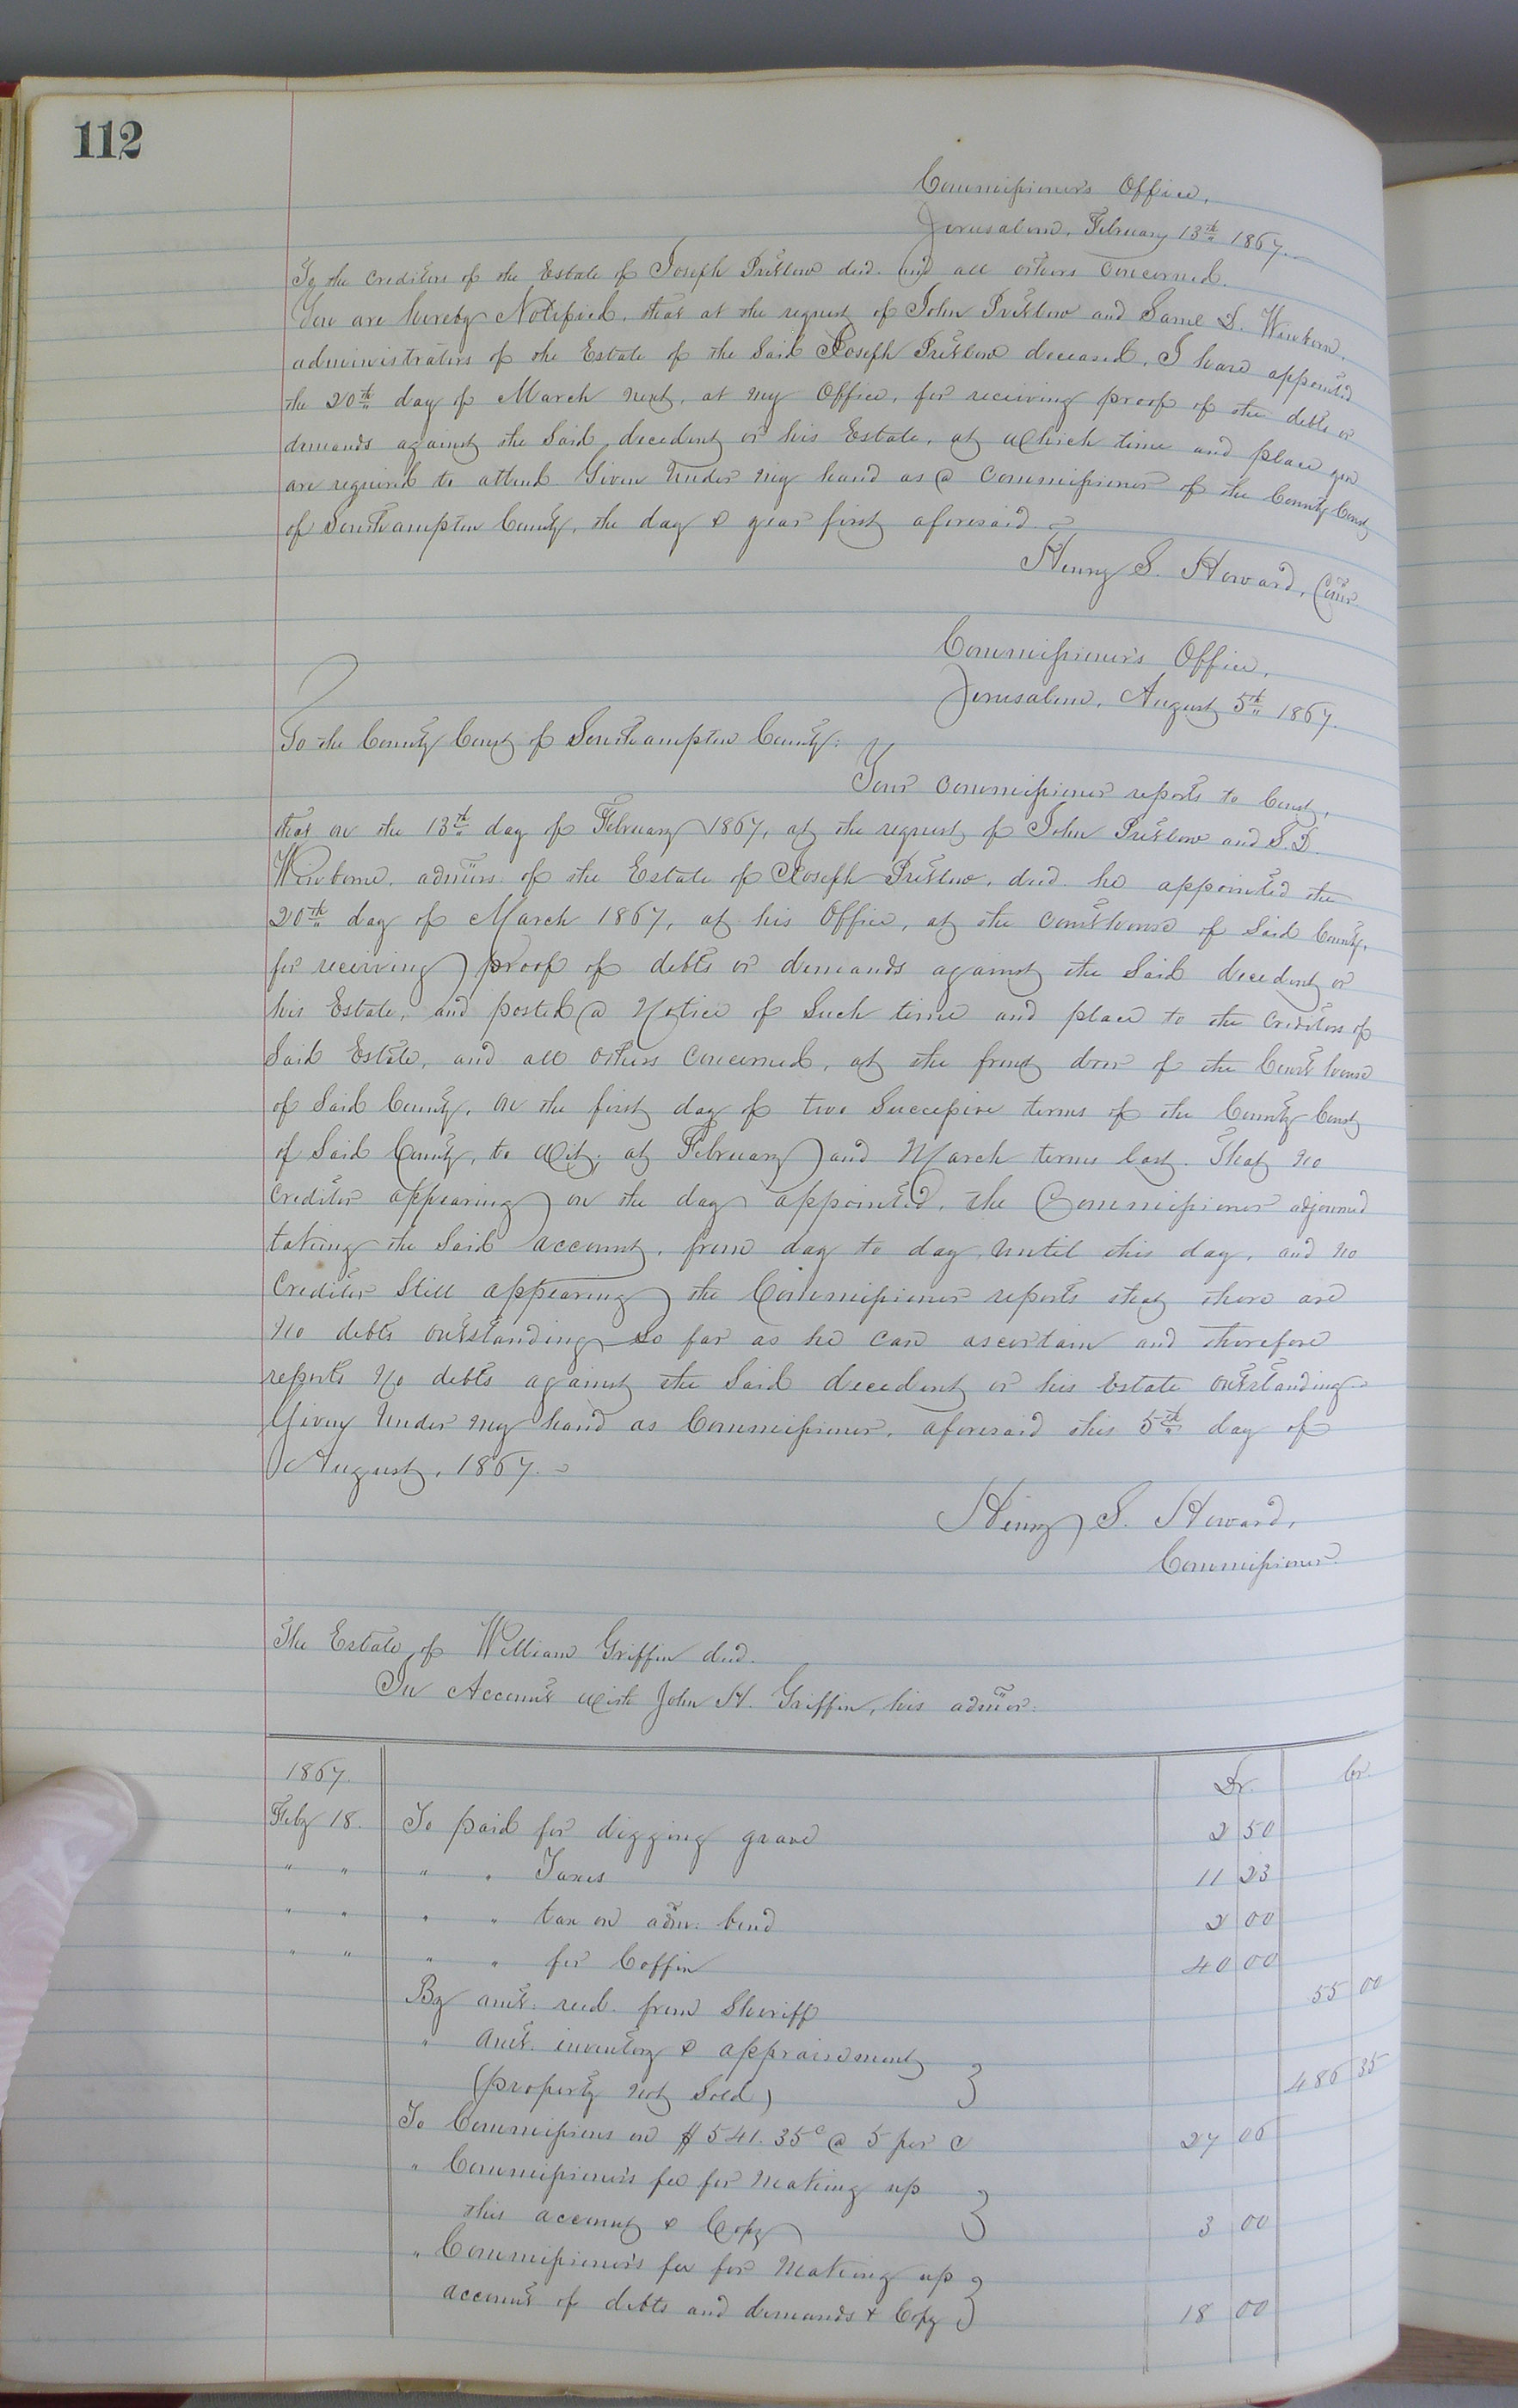 112
Commissioner's Office,
Jerusalem, February 13th 1867.
To the Creditors of the Estate of Joseph Pretlow decd. and all others Concerned.
You are hereby Notified, that at the request of John Pretlow and Saml D. Winborn,
administrators of the Estate of the Said Joseph Pretlow deceased, I have appointed
the 20th day of March next, at my Office, for receiving proof of the debts or
demands against the Said decedent or his Estate, at which time and place you
are required to attend Given Under My hand as a Commissioner of the County Court
of Southampton County, the day & year first aforesaid.
Henry S. Howard, Comr.
Commissioner's Office,
Jerusalem, August 5th 1867.
To the County Court of Southampton County:
Your Commissioner reports to Court,
that on the 13th day of February 1867, at the request of John Pretlow and S. D.
Winborne, admirs. of the Estate of Joseph Pretlow, decd. he appointed the
20th day of March 1867, at his Office, at the Courthouse of Said County,
for receiving proof of debts or demands against the Said decedent or
his Estate, and posted a Notice of Such time and place to the Creditors of
Said Estate, and all others Concerned, at the front door of the Court house
of Said County, on the first day of two Successive terms of the County Court
of Said County, to Wit; at February and March terms last. That no
Creditor appearing on the day appointed, the Commissioner adjourned
taking the Said account, from day to day, until this day, and no
Creditor Still appearing the Commissioner reports that there are
No debts outstanding So far as he can ascertain and therefore
reports No debts against the Said decedent or his Estate outstanding.
Given Under My hand as Commissioner, aforesaid this 5th day of
August, 1867.
Henry S. Howard,
Commissioner.
The Estate of William Griffin decd.
In Account With John H. Griffin, his admor:
1867. Dr. Cr.
Feby 18. To paid for digging grave 2 50
" " " " Taxes 11 23
" " " " tax on adm: bond 2 00
" " " " for Coffin 40 00
By amt. recd. from Sheriff 55 00
" amt. inventory & appraisement
(property Not Sold) } 486 35
To Commissions on $541.35c @ 5 per c 27 06
" Commissioner's fee for Making up
this account & Copy } 3 00
" Commissioner's fee for Making up
account of debts and demands & Copy } 18 00